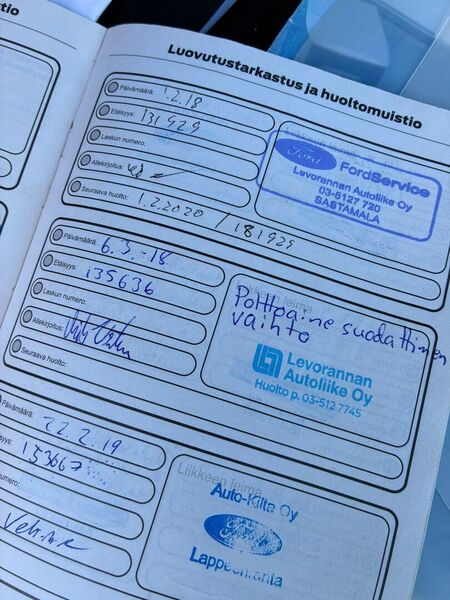 tio
Luovutustarkastus ja huoltomuistio
Päivämäärä: 1.2.18
Etäisyys: 131929
Laskun numero:
Allekirjoitus:
Seuraava huolto: 1.2.2020 / 181929
Liikkeen leima
Ford FordService
Levorannan Autoliike Oy
03-5127 720
SASTAMALA
Päivämäärä: 6.3.-18
Etäisyys: 135636
Laskun numero:
Allekirjoitus:
Seuraava huolto:
Liikkeen leima
Polttoaine suodattimen
vaihto
Levorannan
Autoliike Oy
Huolto p. 03-512 7745
Päivämäärä: 22.2.19
syys: 153667
numero:
Liikkeen leima
Auto-Kilta Oy
Ford
Lappeenranta